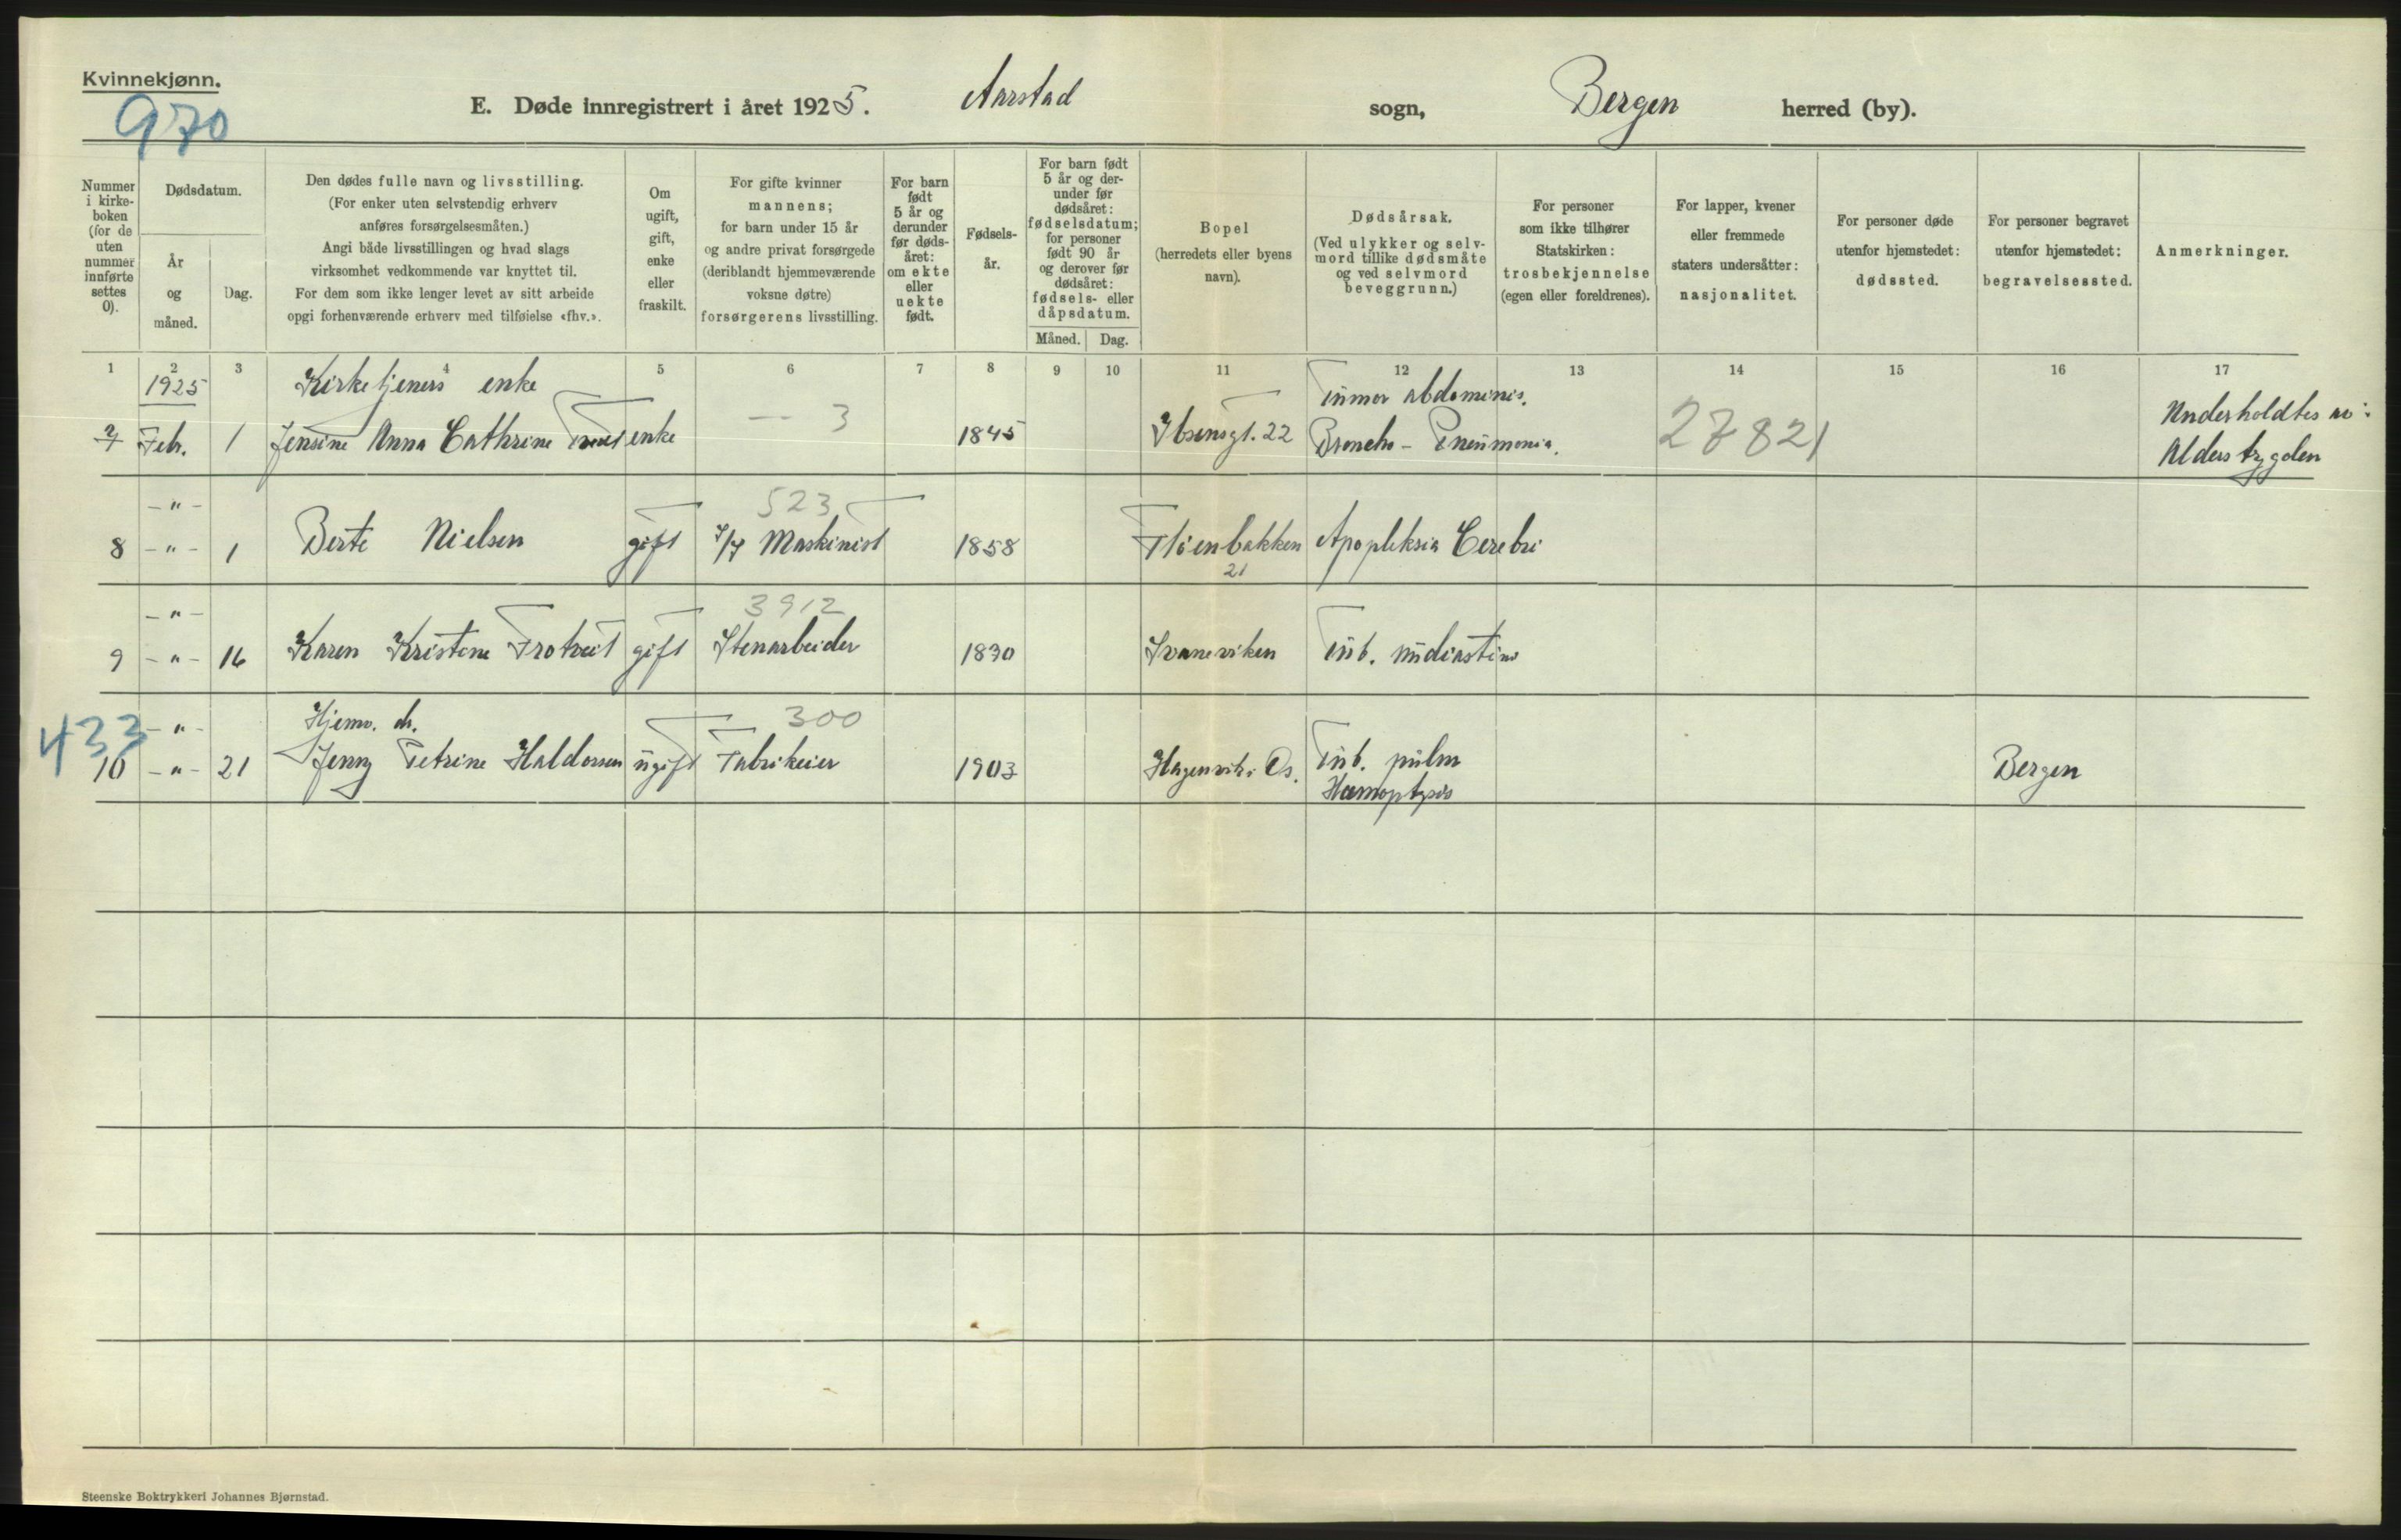 Kvinnekjønn.
970
E. Døde innregistrert i året 1925. Aarstad sogn, Bergen herred (by).
Nummer i kirke-boken (for de uten nummer innførte settes 0).
Dødsdatum.
År og måned.
Dag.
Den dødes fulle navn og livsstilling.
(For enker uten selvstendig erhverv
anføres forsørgelsesmåten.)
Angi både livsstillingen og hvad slags
virksomhet vedkommende var knyttet til.
For dem som ikke lenger levet av sitt arbeide
opgi forhenværende erhverv med tilføielse «fhv.».
Om ugift, gift, enke eller fraskilt.
For gifte kvinner
mannens;
for barn under 15 år
og andre privat forsørgede
(deriblandt hjemmeværende
voksne døtre)
forsørgerens livsstilling.
For barn født 5 år og derunder før døds-året: om ekte eller uekte født.
Fødsels-år.
For barn født
5 år og der-
under før
dødsåret:
fødselsdatum;
for personer
født 90 år
og derover før
dødsåret:
fødsels- eller
dåpsdatum.
Måned. Dag.
Bopel
(herredets eller byens
navn).
Dødsårsak.
(Ved ulykker og selv-
mord tillike dødsmåte
og ved selvmord
beveggrunn.)
For personer
som ikke tilhører
Statskirken:
trosbekjennelse
(egen eller foreldrenes).
For lapper, kvener
eller fremmede
staters undersåtter:
nasjonalitet.
For personer døde
utenfor hjemstedet:
dødssted.
For personer begravet
utenfor hjemstedet:
begravelsessted.
Anmerkninger.
1 2 3 4 5 6 7 8 9 10 11 12 13 14 15 16 17
1925 Kirketjeners enke Tumor abdominis.
7 Febr. 1 Jensine Anna Cathrine enke — 3 1845 Ibsensgt. 22 Broncho-Pneumonia. 27821 Underholdtes av:
Alderstrygden
-"- 523
8 -"- 1 Berte Nielsen gift Maskinist 1858 Fløenbakken 21 Apopleksia Cerebri
-"- 3912
9 -"- 16 Karen Kristine gift Stenarbeider Svaneviken Tub.
433 -"- Hjemv. dt. 300
10 -"- 21 Jenny Petrine Haldorsen ugift Fabrikeier 1903 Hagenvik i Os. Tub. pulm Bergen
Hæmoptysis
Steenske Boktrykkeri Johannes Bjørnstad.